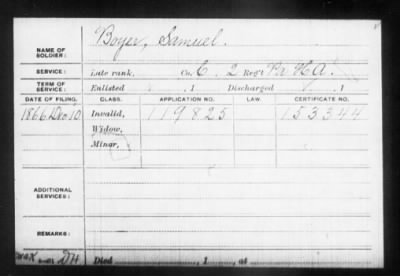 NAME OF SOLDIER: Boyer, Samuel.
SERVICE: Late rank, Co. C. 2 Reg't Pa H A.
TERM OF SERVICE: Enlisted , 1 Discharged , 1
DATE OF FILING. CLASS. APPLICATION NO. LAW. CERTIFICATE NO.
1866 Dec 10 Invalid, 119825 153344
Widow,
Minor,
ADDITIONAL SERVICES:
REMARKS:
Died , 1 , at